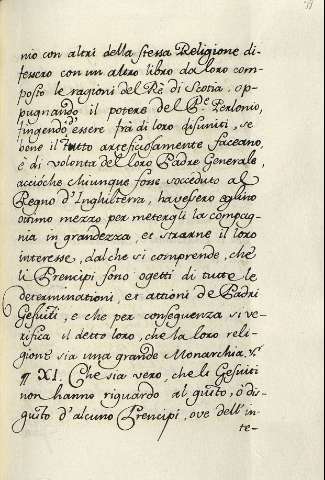 nio con altri della stessa Religione di-
fessero con un altro libro da loro com-
posto le ragioni del Rè di Scotia, op-
pugnando il potere del P.e Personio,
fingendo essere frà di loro disuniti, se
bene il tutto arteficiosamente faceano,
è di volontà del loro Padre Generale,
acciòche chiunque fosse socceduto al
Regno d'Inghilterra, havesero eglino
ottimo mezzo per mettergli la compag-
nia in grandezza, et strarne il loro
interesse, dal che si comprende, che
li Prencipi sono ogetti di tutte le
determinationi, et attioni de Padri
Gesuiti, e che per conseguenza si ve-
rifica il detto loro, che la loro reli-
gione sia una grande Monarchia.
¶ XI. Che sia vero, che li Gesuiti
non hanno riguardo al gusto, ò dis-
gusto d'alcuno Prencipi, ove dell'in-
te-